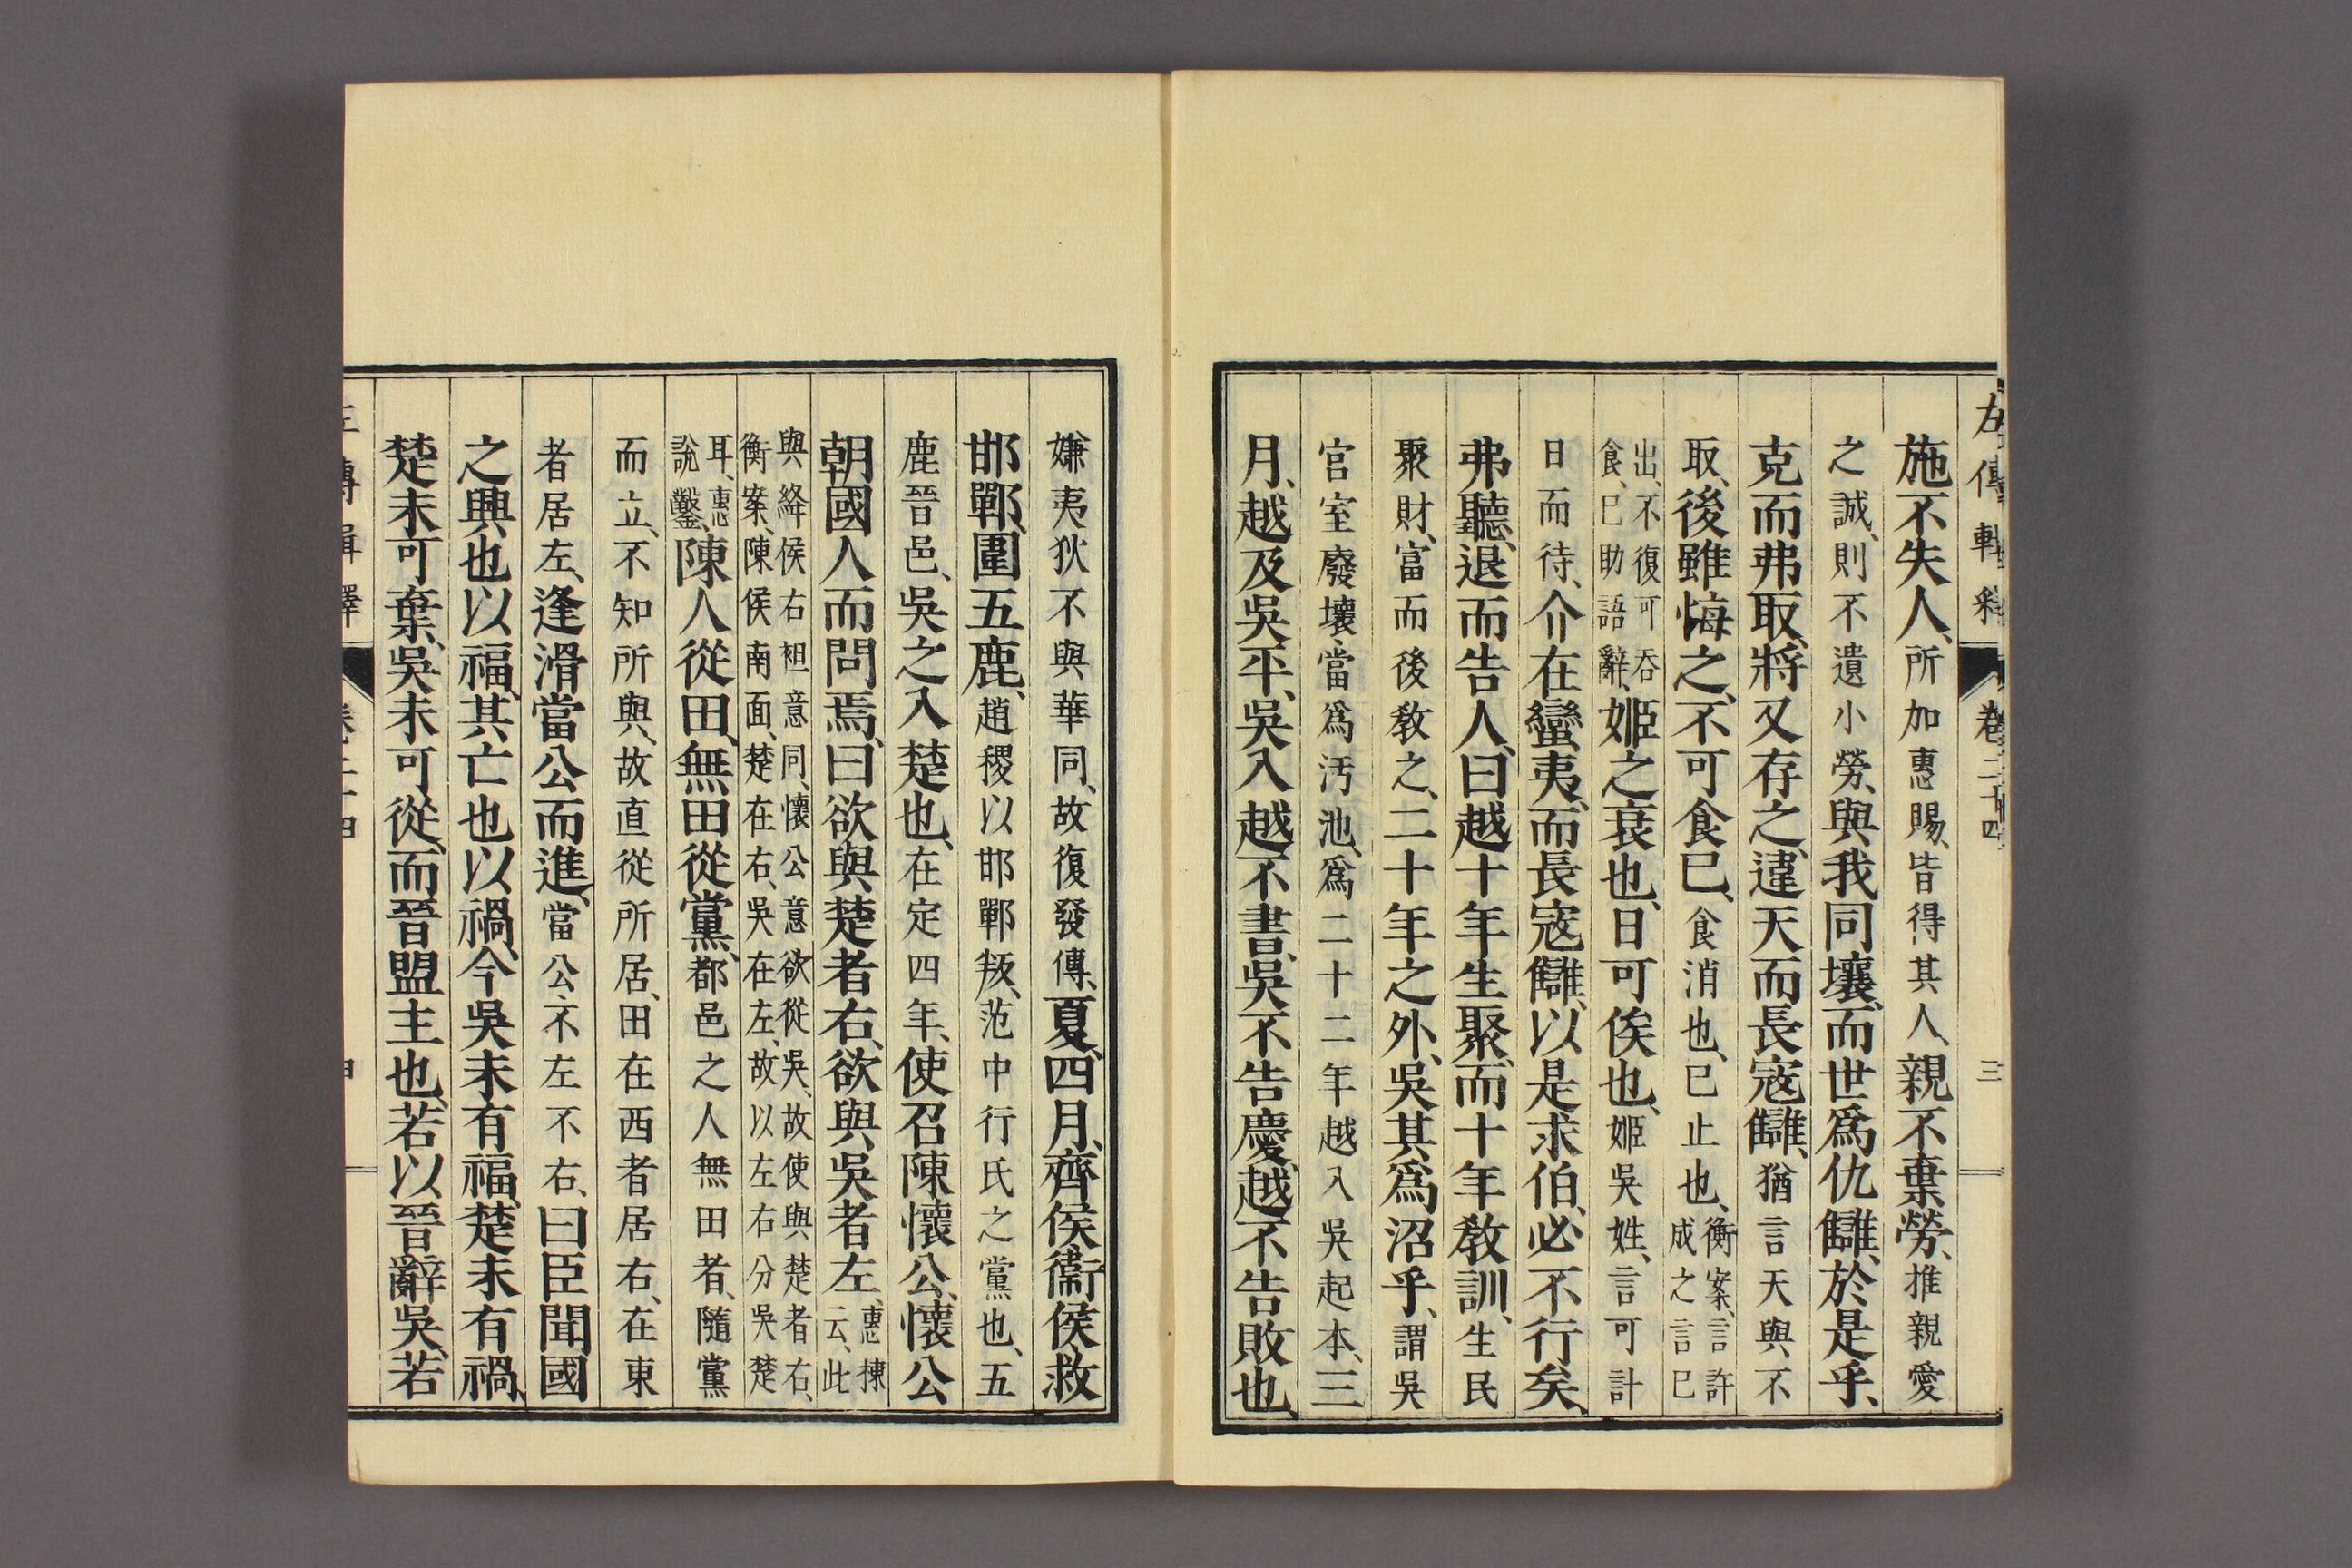 左傳輯釋 卷二十四 三
施不失人、所加惠賜、皆得其人、親不棄勞、推親愛
之誠、則不遺小勞、與我同壤、而世爲仇讎、於是乎、
克而弗取、將又存之、違天而長寇讎、猶言天與不
取、後雖悔之、不可食已、食消也、已止也、衡案、言許成之言已
出、不復可吞食、已助語辭、姬之衰也、日可俟也、姬吳姓、言可計
日而待、介在蠻夷、而長寇讎、以是求伯、必不行矣、
弗聽、退而告人、曰越十年生聚、而十年敎訓、生民
聚財、富而後敎之、二十年之外、吳其爲沼乎、謂吳
宮室廢壞、當爲汚池、爲二十二年越入吳起本、三
月、越及吳平、吳入越不書、吳不告慶、越不告敗也、
嫌夷狄不與華同、故復發傳、夏、四月、齊侯衞侯救
邯鄲、圍五鹿、趙稷以邯鄲叛、范中行氏之黨也、五
鹿晉邑、吳之入楚也、在定四年、使召陳懷公、懷公
朝國人而問焉、曰欲與楚者右、欲與吳者左、惠棟云、此
與絳侯右袒意同、懷公意欲從吳、故使與楚者右、衡案、陳侯南面、楚在右、吳在左、故以左右分吳楚
耳、惠說鑿、陳人從田、無田從黨、都邑之人無田者、隨黨
而立、不知所與、故直從所居、田在西者居右、在東
者居左、逢滑當公而進、當公不左不右、曰臣聞國
之興也以福、其亡也以禍、今吳未有福、楚未有禍、
楚未可棄、吳未可從、而晉盟主也、若以晉辭吳、若